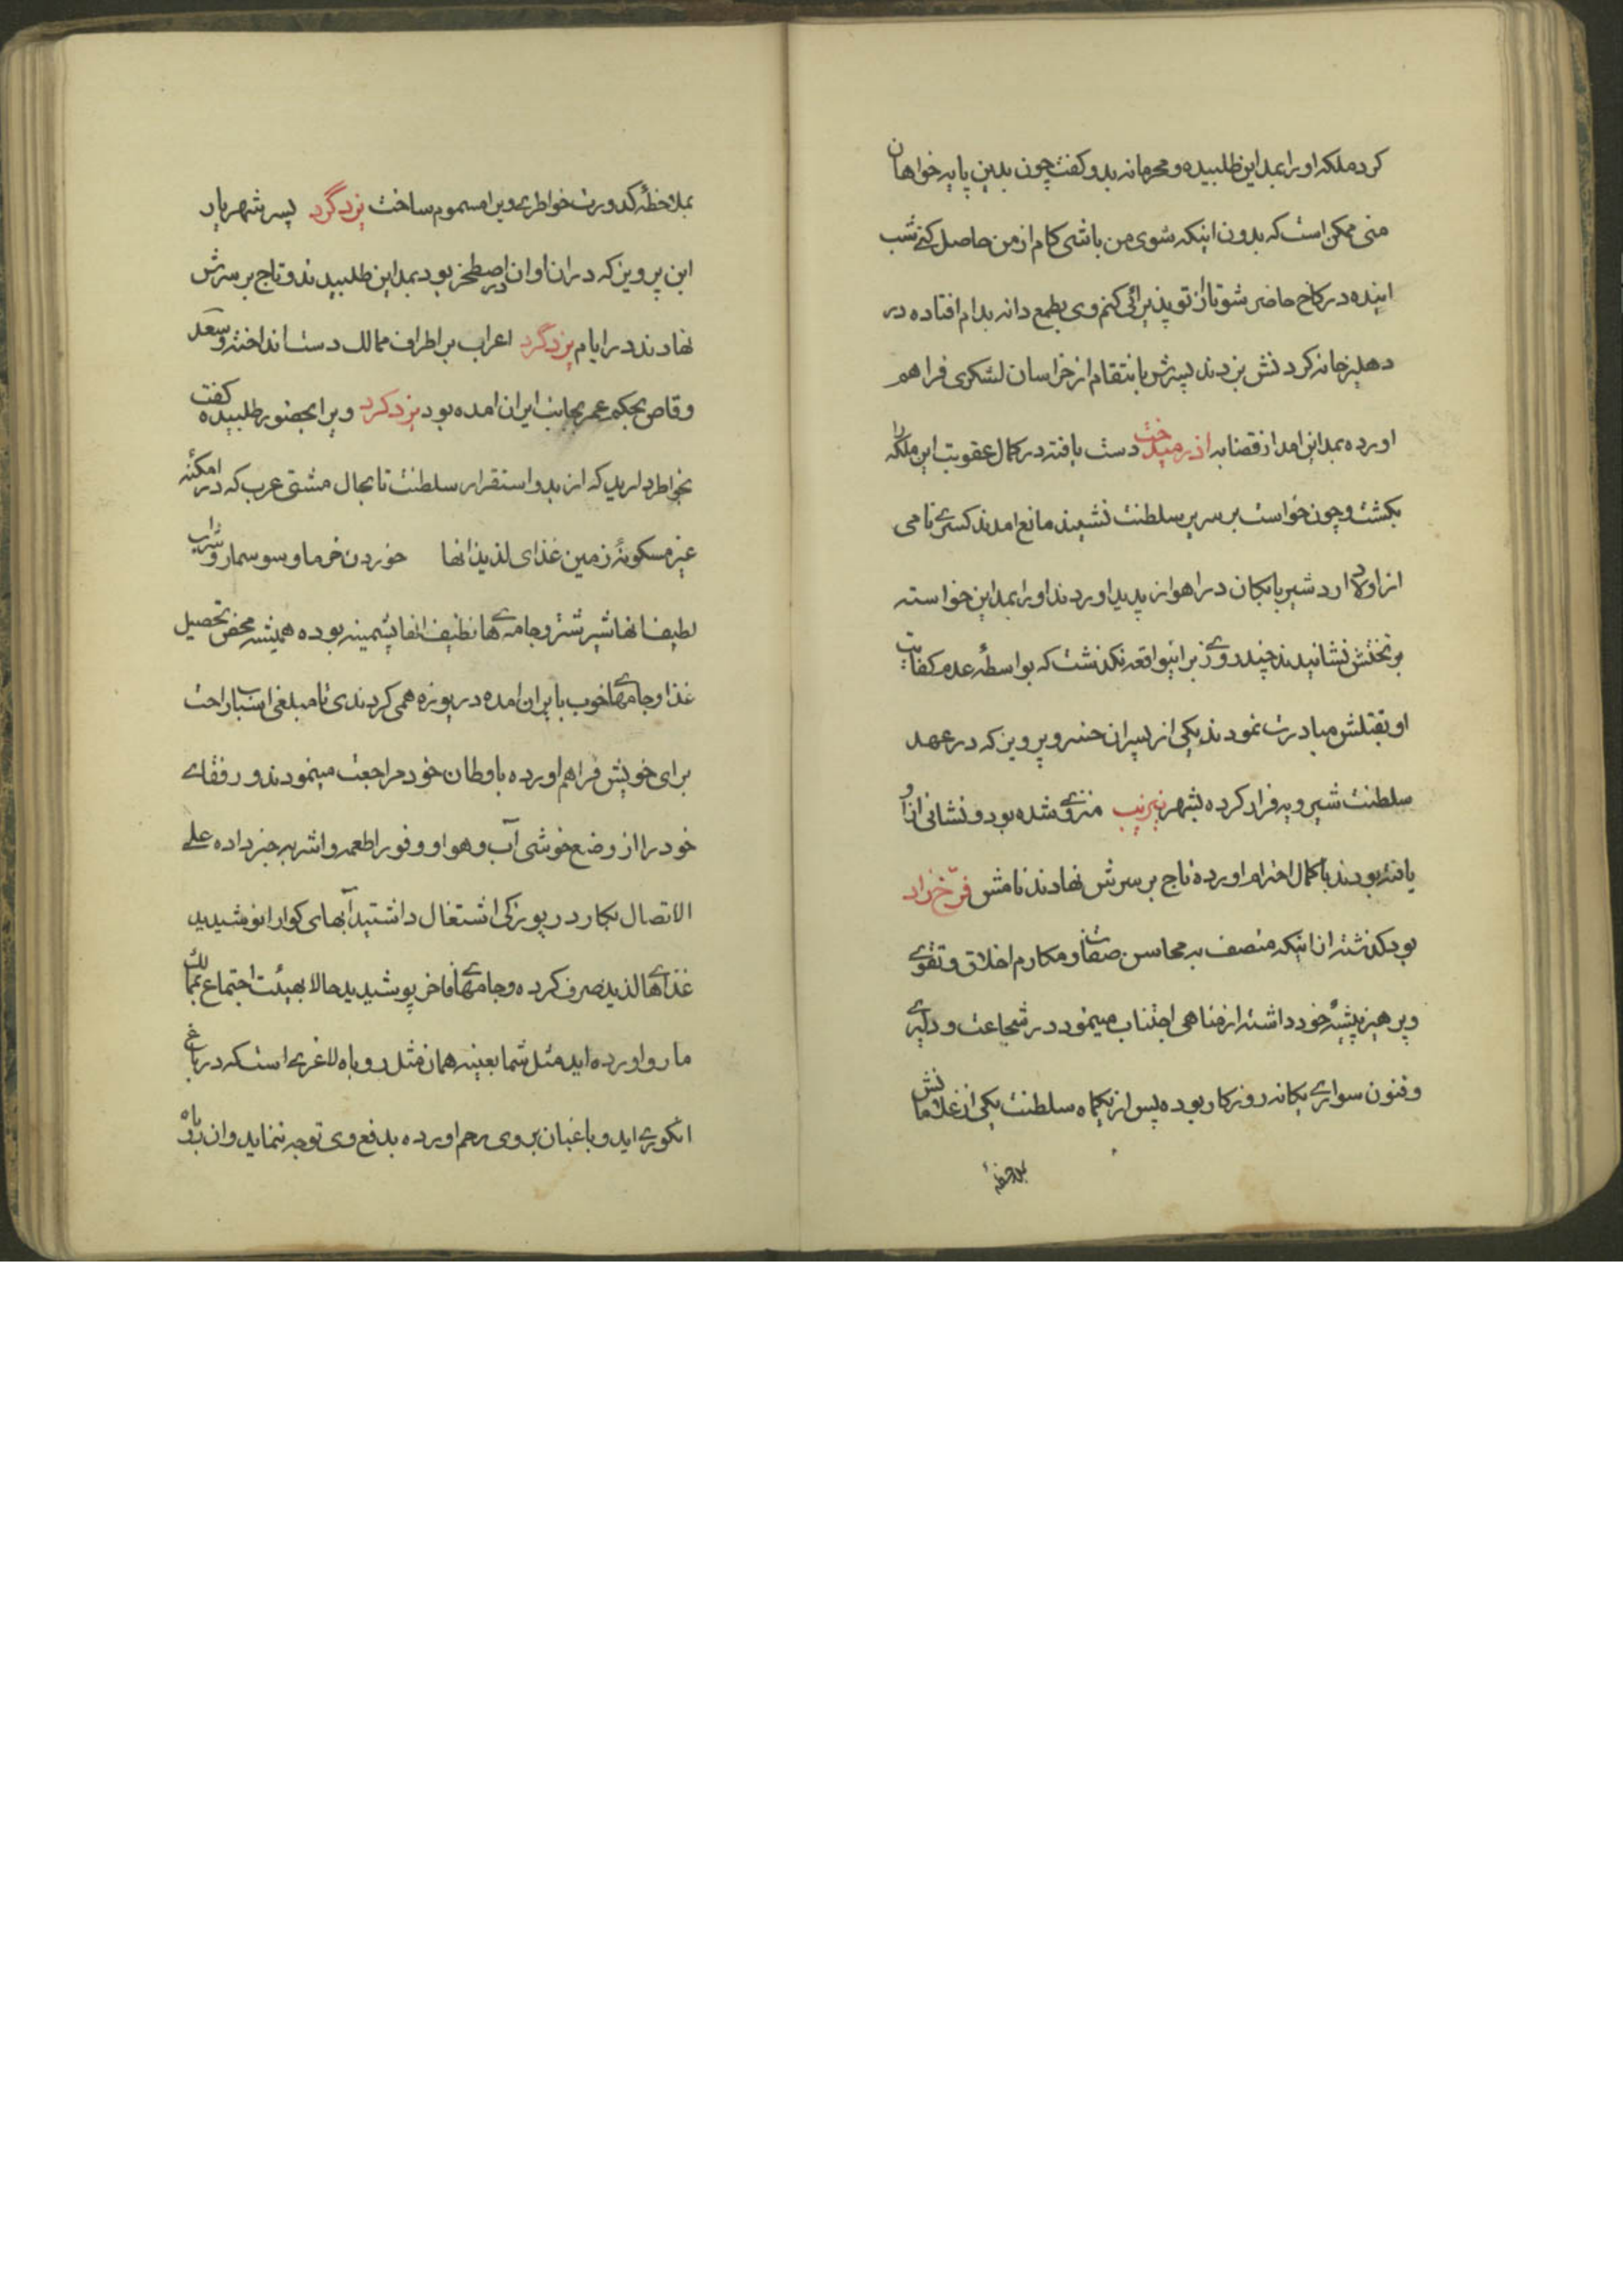 کرد ملکه او را بمداین طلبیده و محرمانه بدو کفت چون بدین پایه خواهان
منی ممکن است که بدون اینکه شوی من باشی کام از من حاصل کنی شب
اینده در کاخ حاضر شو تا از تو پذیرائی کنم وی بطمع دانه بدام افتاده در
دهلیز خانه کردنش بزدند پسرش بانتقام از خراسان لشکری فراهم
اورده بمداین امد از قضا به اذرمیدخت دست یافته در کمال عقوبت این ملکه را
بکشت و چون خواست بر سریر سلطنت نشیند مانع امدند کسری نامی
از اولاد اردشیر بابکان در اهواز پدید اوردند او را بمداین خواسته
بر تختش نشانیدند چند روزی بر اینواقعه نکذشت که بواسطهٔ عدم کفایت
او بقتلش مبادرت نمودند یکی از پسران خسرو پرویز که در عهد
سلطنت شیرویه فرار کرده بشهر منزوی شده بود و نشانی از او
یافته بودند با کمال احترام اورده تاج بر سرش نهادند نامش فرّخ زاد
بود کذشته از اینکه متصف به محاسن صفات و مکارم اخلاق و تقوی
و پرهیز پیشهٔ خود داشته از مناهی اجتناب مینمود در شجاعت و دلیری
و فنون سواری یکانه روزکار بوده پس از یکماه سلطنت یکی از غلامانش
بملاحظهٔ
بملاحظهٔ کدورت خواطری ویرا مسموم ساخت یزدگرد پسر شهریار
ابن پرویز که در ان اوان در اصطخر بود بمداین طلبیدند و تاج بر سرش
نهادند در ایام یزدگرد اعراب بر اطراف ممالک دست انداخته و سعد
وقاص بحکم عمر بجانب ایران امده بود یزدکرد ویرا بحضور طلبیده کفت
بخواطر دارید که از بدو استقرار سلطنت تا بحال مشتی عرب که در امکنهٔ
غیر مسکونهٔ زمین غذای لذیذ انها خوردن خرما و سوسمار و شراب
لطیف انها شیر شتر و جامه‌ی‌ها نظیف انها پشمینه بوده همیشه محض تحصیل
غذا و جامهای خوب بایران امده دریوزه همی کردندی تا مبلغی اسباب راحت
برای خویش فراهم اورده باوطان خود مراجعت مینمودند و رفقای
خود را از وضع خوشی آب و هوا و وفور اطعمه و اشربه خبر داده علی
الاتصال بکار دریوزکی اشتغال داشتید آبهای کوارا نوشیدید
غذاهای لذیذ صرف کرده و جامهای فاخر پوشیدید حالا بهیئت اجتماع بممالک
ما رو اورده اید مثل شما بعینه همان مثل روباه لاغری است که در باغ
انکوری اید و باغبان بر وی رحم اورده بدفع وی توجه ننماید و ان روباه